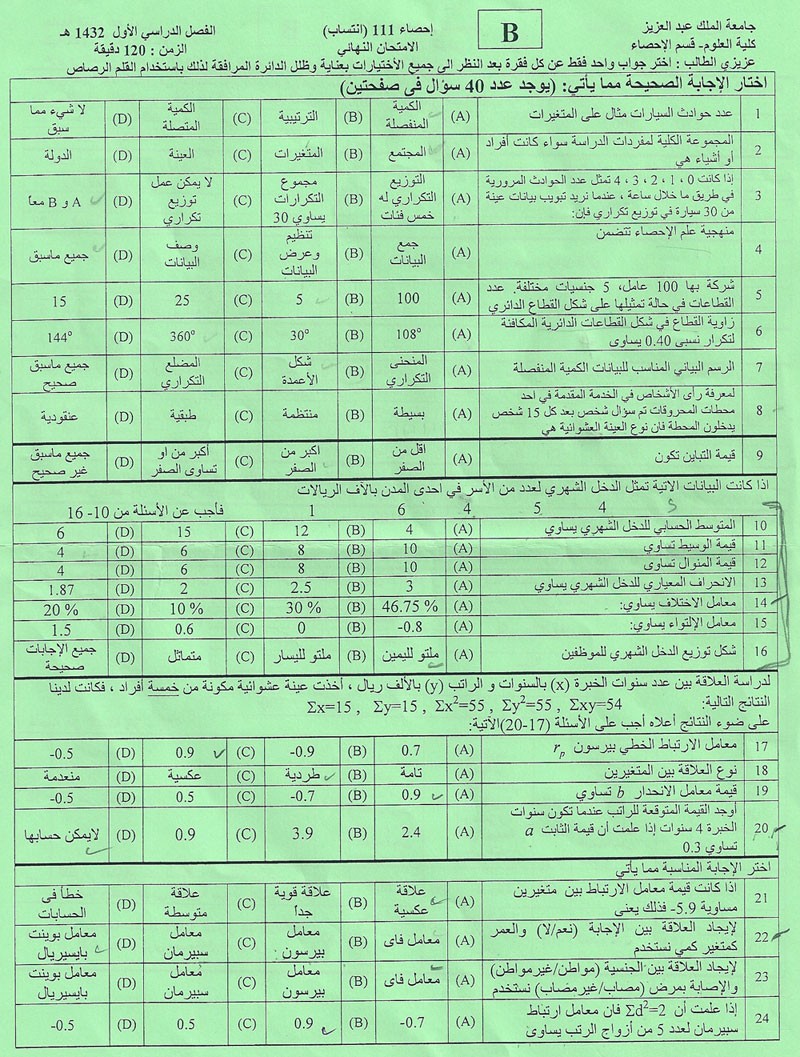 جامعة الملك عبد العزيز
إحصاء 111 (انتساب)
الفصل الدراسي الأول 1432 هـ
كلية العلوم- قسم الإحصاء
B
الامتحان النهائي
الزمن : 120 دقيقة
عزيزي الطالب : اختر جواب واحد فقط عن كل فقرة بعد النظر الى جميع الأختيارات بعناية وظلل الدائرة المرافقة لذلك باستخدام القلم الرصاص
اختار الإجابة الصحيحة مما يأتي: (يوجد عدد 40 سؤال في صفحتين)
1 عدد حوادث السيارات مثال على المتغيرات (A) الكمية المنفصلة (B) الترتيبية (C) الكمية المتصلة (D) لا شيء مما سبق
2 المجموعة الكلية لمفردات الدراسة سواء كانت أفراد أو أشياء هي (A) المجتمع (B) المتغيرات (C) العينة (D) الدولة
3 إذا كانت 0 ، 1 ، 2 ، 3 ، 4 تمثل عدد الحوادث المرورية في طريق ما خلال ساعة ، عندما نريد تبويب بيانات عينة من 30 سيارة في توزيع تكراري فإن: (A) التوزيع التكراري له خمس فئات (B) مجموع التكرارات يساوي 30 (C) لا يمكن عمل توزيع تكراري (D) A و B معاً
4 منهجية علم الإحصاء تتضمن (A) جمع البيانات (B) تنظيم وعرض البيانات (C) وصف البيانات (D) جميع ماسبق
5 شركة بها 100 عامل، 5 جنسيات مختلفة. عدد القطاعات في حالة تمثيلها على شكل القطاع الدائري (A) 100 (B) 5 (C) 25 (D) 15
6 زاوية القطاع في شكل القطاعات الدائرية المكافئة لتكرار نسبى 0.40 يساوى (A) 108° (B) 30° (C) 360° (D) 144°
7 الرسم البياني المناسب للبيانات الكمية المنفصلة (A) المنحنى التكراري (B) شكل الأعمدة (C) المضلع التكراري (D) جميع ماسبق صحيح
8 لمعرفة رأى الأشخاص في الخدمة المقدمة في احد محطات المحروقات تم سؤال شخص بعد كل 15 شخص يدخلون المحطة فان نوع العينة العشوائية هي (A) بسيطة (B) منتظمة (C) طبقية (D) عنقودية
9 قيمة التباين تكون (A) اقل من الصفر (B) اكبر من الصفر (C) أكبر من او تساوى الصفر (D) جميع ماسبق غير صحيح
اذا كانت البيانات الاتية تمثل الدخل الشهري لعدد من الأسر في احدى المدن بالآف الريالات
5 4 5 4 6 1 فأجب عن الأسئلة من 10- 16
10 المتوسط الحسابي للدخل الشهري يساوي (A) 4 (B) 12 (C) 15 (D) 6
11 قيمة الوسيط تساوي (A) 10 (B) 8 (C) 6 (D) 4
12 قيمة المنوال تساوى (A) 10 (B) 8 (C) 6 (D) 4
13 الانحراف المعياري للدخل الشهري يساوي (A) 3 (B) 2.5 (C) 2 (D) 1.87
14 معامل الاختلاف يساوي: (A) 46.75 % (B) 30 % (C) 10 % (D) 20 %
15 معامل الإلتواء يساوي: (A) -0.8 (B) 0 (C) 0.6 (D) 1.5
16 شكل توزيع الدخل الشهري للموظفين (A) ملتو لليمين (B) ملتو لليسار (C) متماثل (D) جميع الإجابات صحيحة
لدراسة العلاقة بين عدد سنوات الخبرة (x) بالسنوات و الراتب (y) بالألف ريال ، أخذت عينة عشوائية مكونة من خمسة أفراد ، فكانت لدينا
النتائج التالية: Σx=15 , Σy=15 , Σx²=55 , Σy²=55 , Σxy=54
على ضوء النتائج أعلاه أجب على الأسئلة (17-20)الآتية:
17 معامل الارتباط الخطي بيرسون rp (A) 0.7 (B) -0.9 (C) 0.9 (D) -0.5
18 نوع العلاقة بين المتغيرين (A) تامة (B) طردية (C) عكسية (D) منعدمة
19 قيمة معامل الانحدار b تساوي (A) 0.9 (B) -0.7 (C) 0.5 (D) -0.5
20 أوجد القيمة المتوقعة للراتب عندما تكون سنوات الخبرة 4 سنوات إذا علمت أن قيمة الثابت a تساوي 0.3 (A) 2.4 (B) 3.9 (C) 0.9 (D) لايمكن حسابها
اختر الإجابة المناسبة مما يأتي
21 اذا كانت قيمة معامل الارتباط بين متغيرين مساوية 5.9- فذلك يعنى (A) علاقة عكسية (B) علاقة قوية جداً (C) علاقة متوسطة (D) خطأ فى الحسابات
22 لإيجاد العلاقة بين الإجابة (نعم/لا) والعمر كمتغير كمي نستخدم (A) معامل فاى (B) معامل بيرسون (C) معامل سبيرمان (D) معامل بوينت بايسيريال
23 لإيجاد العلاقة بين الجنسية (مواطن/غيرمواطن) والإصابة بمرض (مصاب/غيرمصاب) نستخدم (A) معامل فاى (B) معامل بيرسون (C) معامل سبيرمان (D) معامل بوينت بايسيريال
24 إذا علمت أن Σd²=2 فان معامل ارتباط سبيرمان لعدد 5 من أزواج الرتب يساوى (A) -0.7 (B) 0.9 (C) 0.5 (D) -0.5